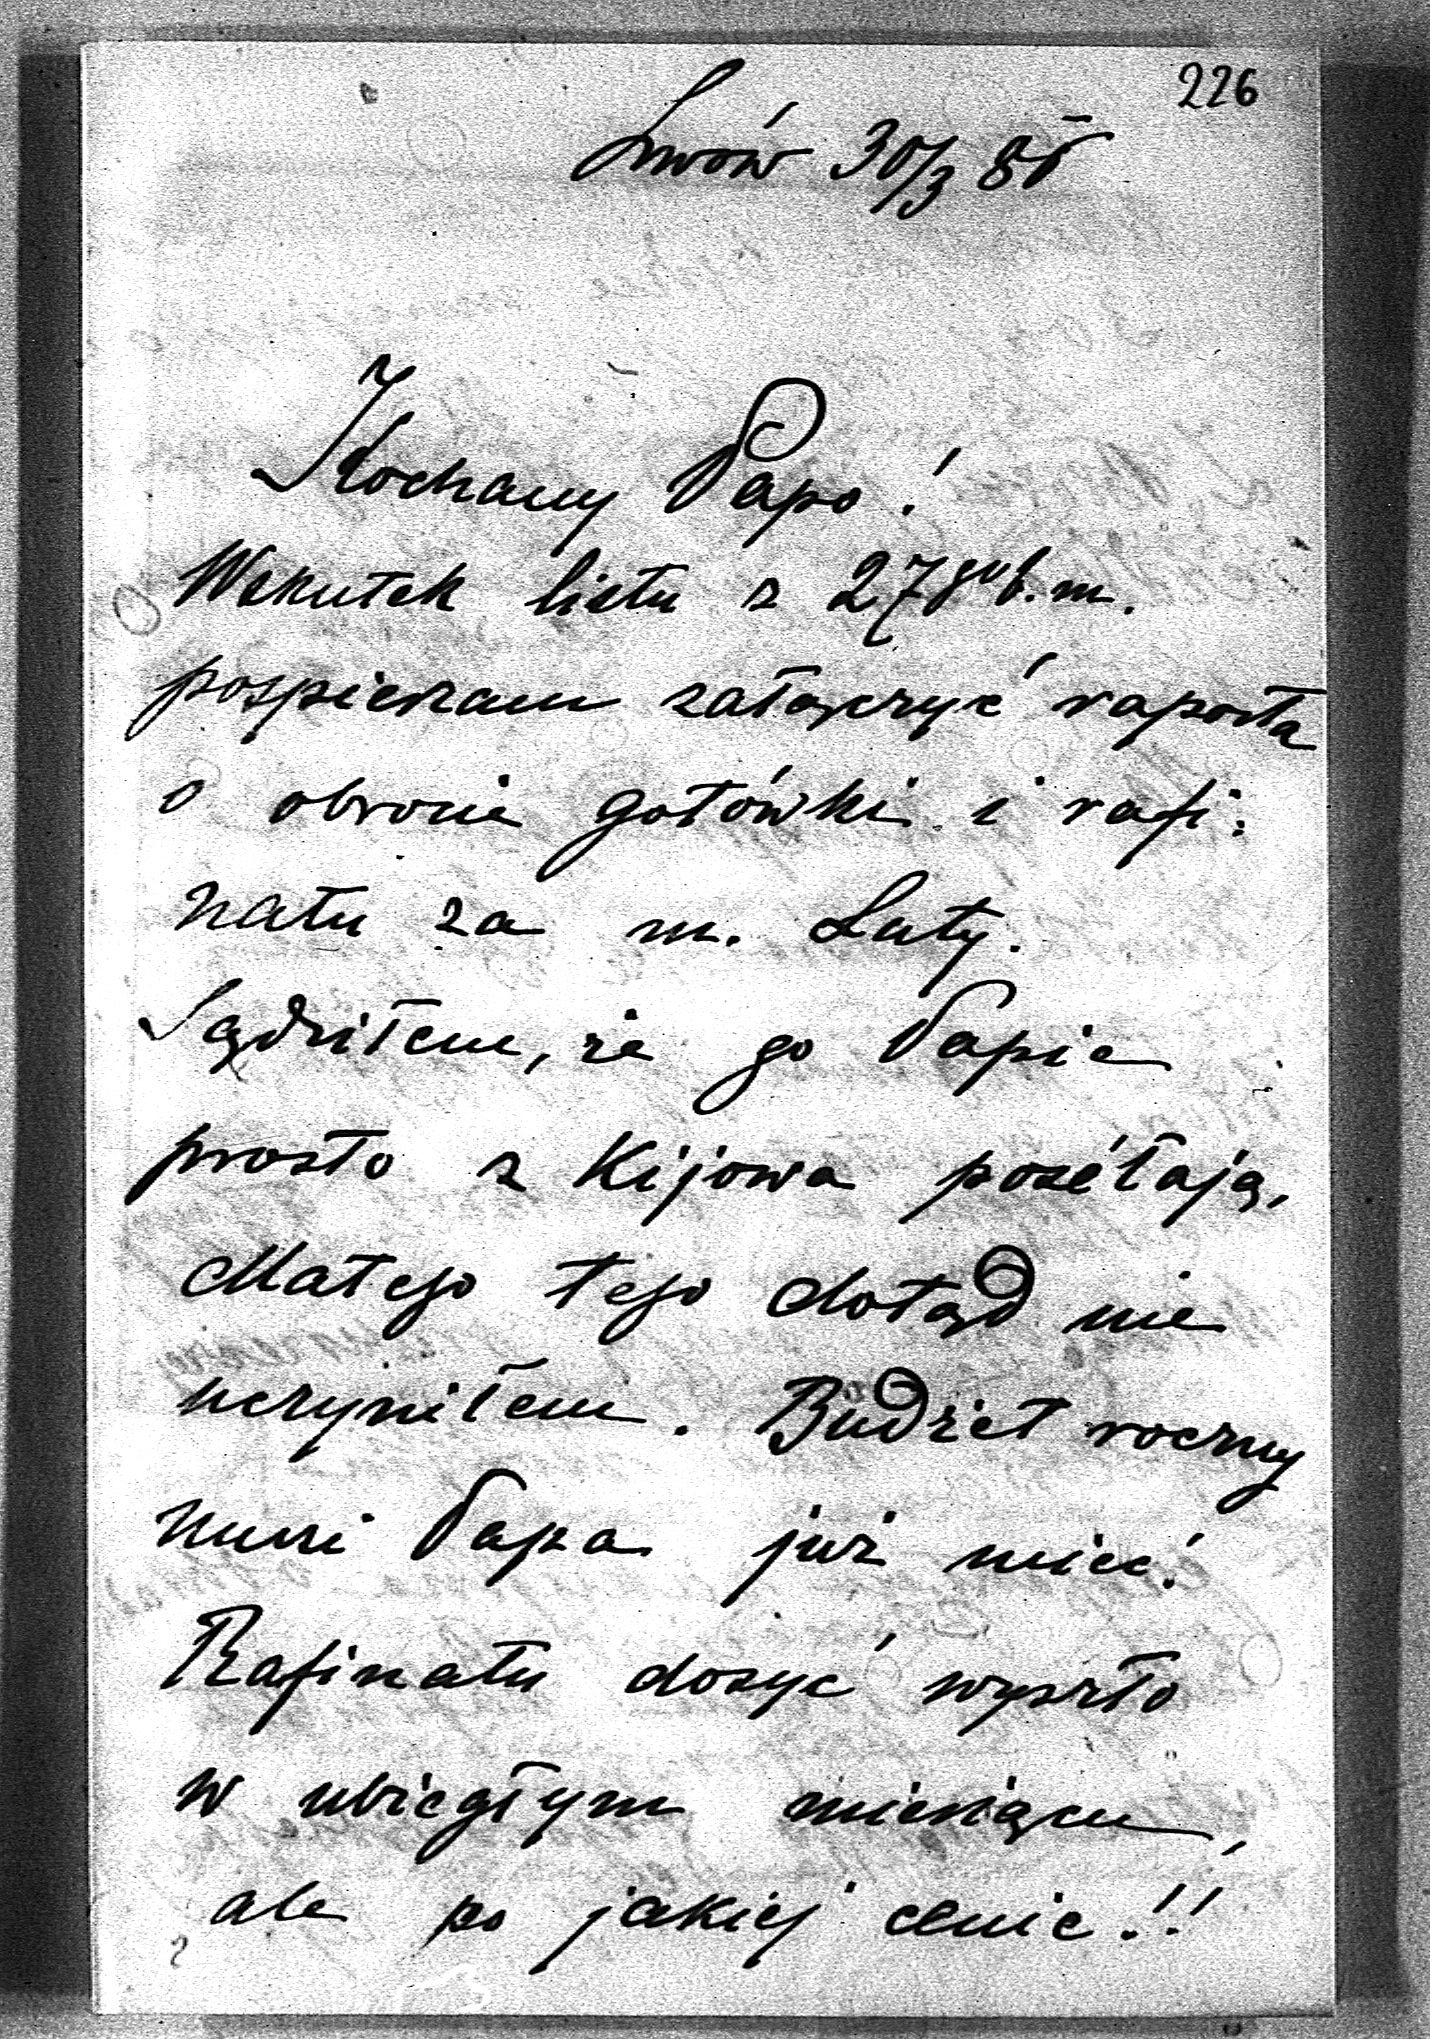 226
Lwów 30/3 85
Kochany Papo!
Wskutek listu z 27go b.m.
pospieszam załączyć raporta
o obrocie gotówki i rafi:
natu za m. Luty.
Sądziłem, że go Papie
prosto z Kijowa posełają,
Małego tego dotąd nie
uczyniłem. Budżet roczny
musi Papa już mieć!
Rafinatu dosyć wyszło
w ubiegłym miesiącu,
ale po jakiej cenie!!